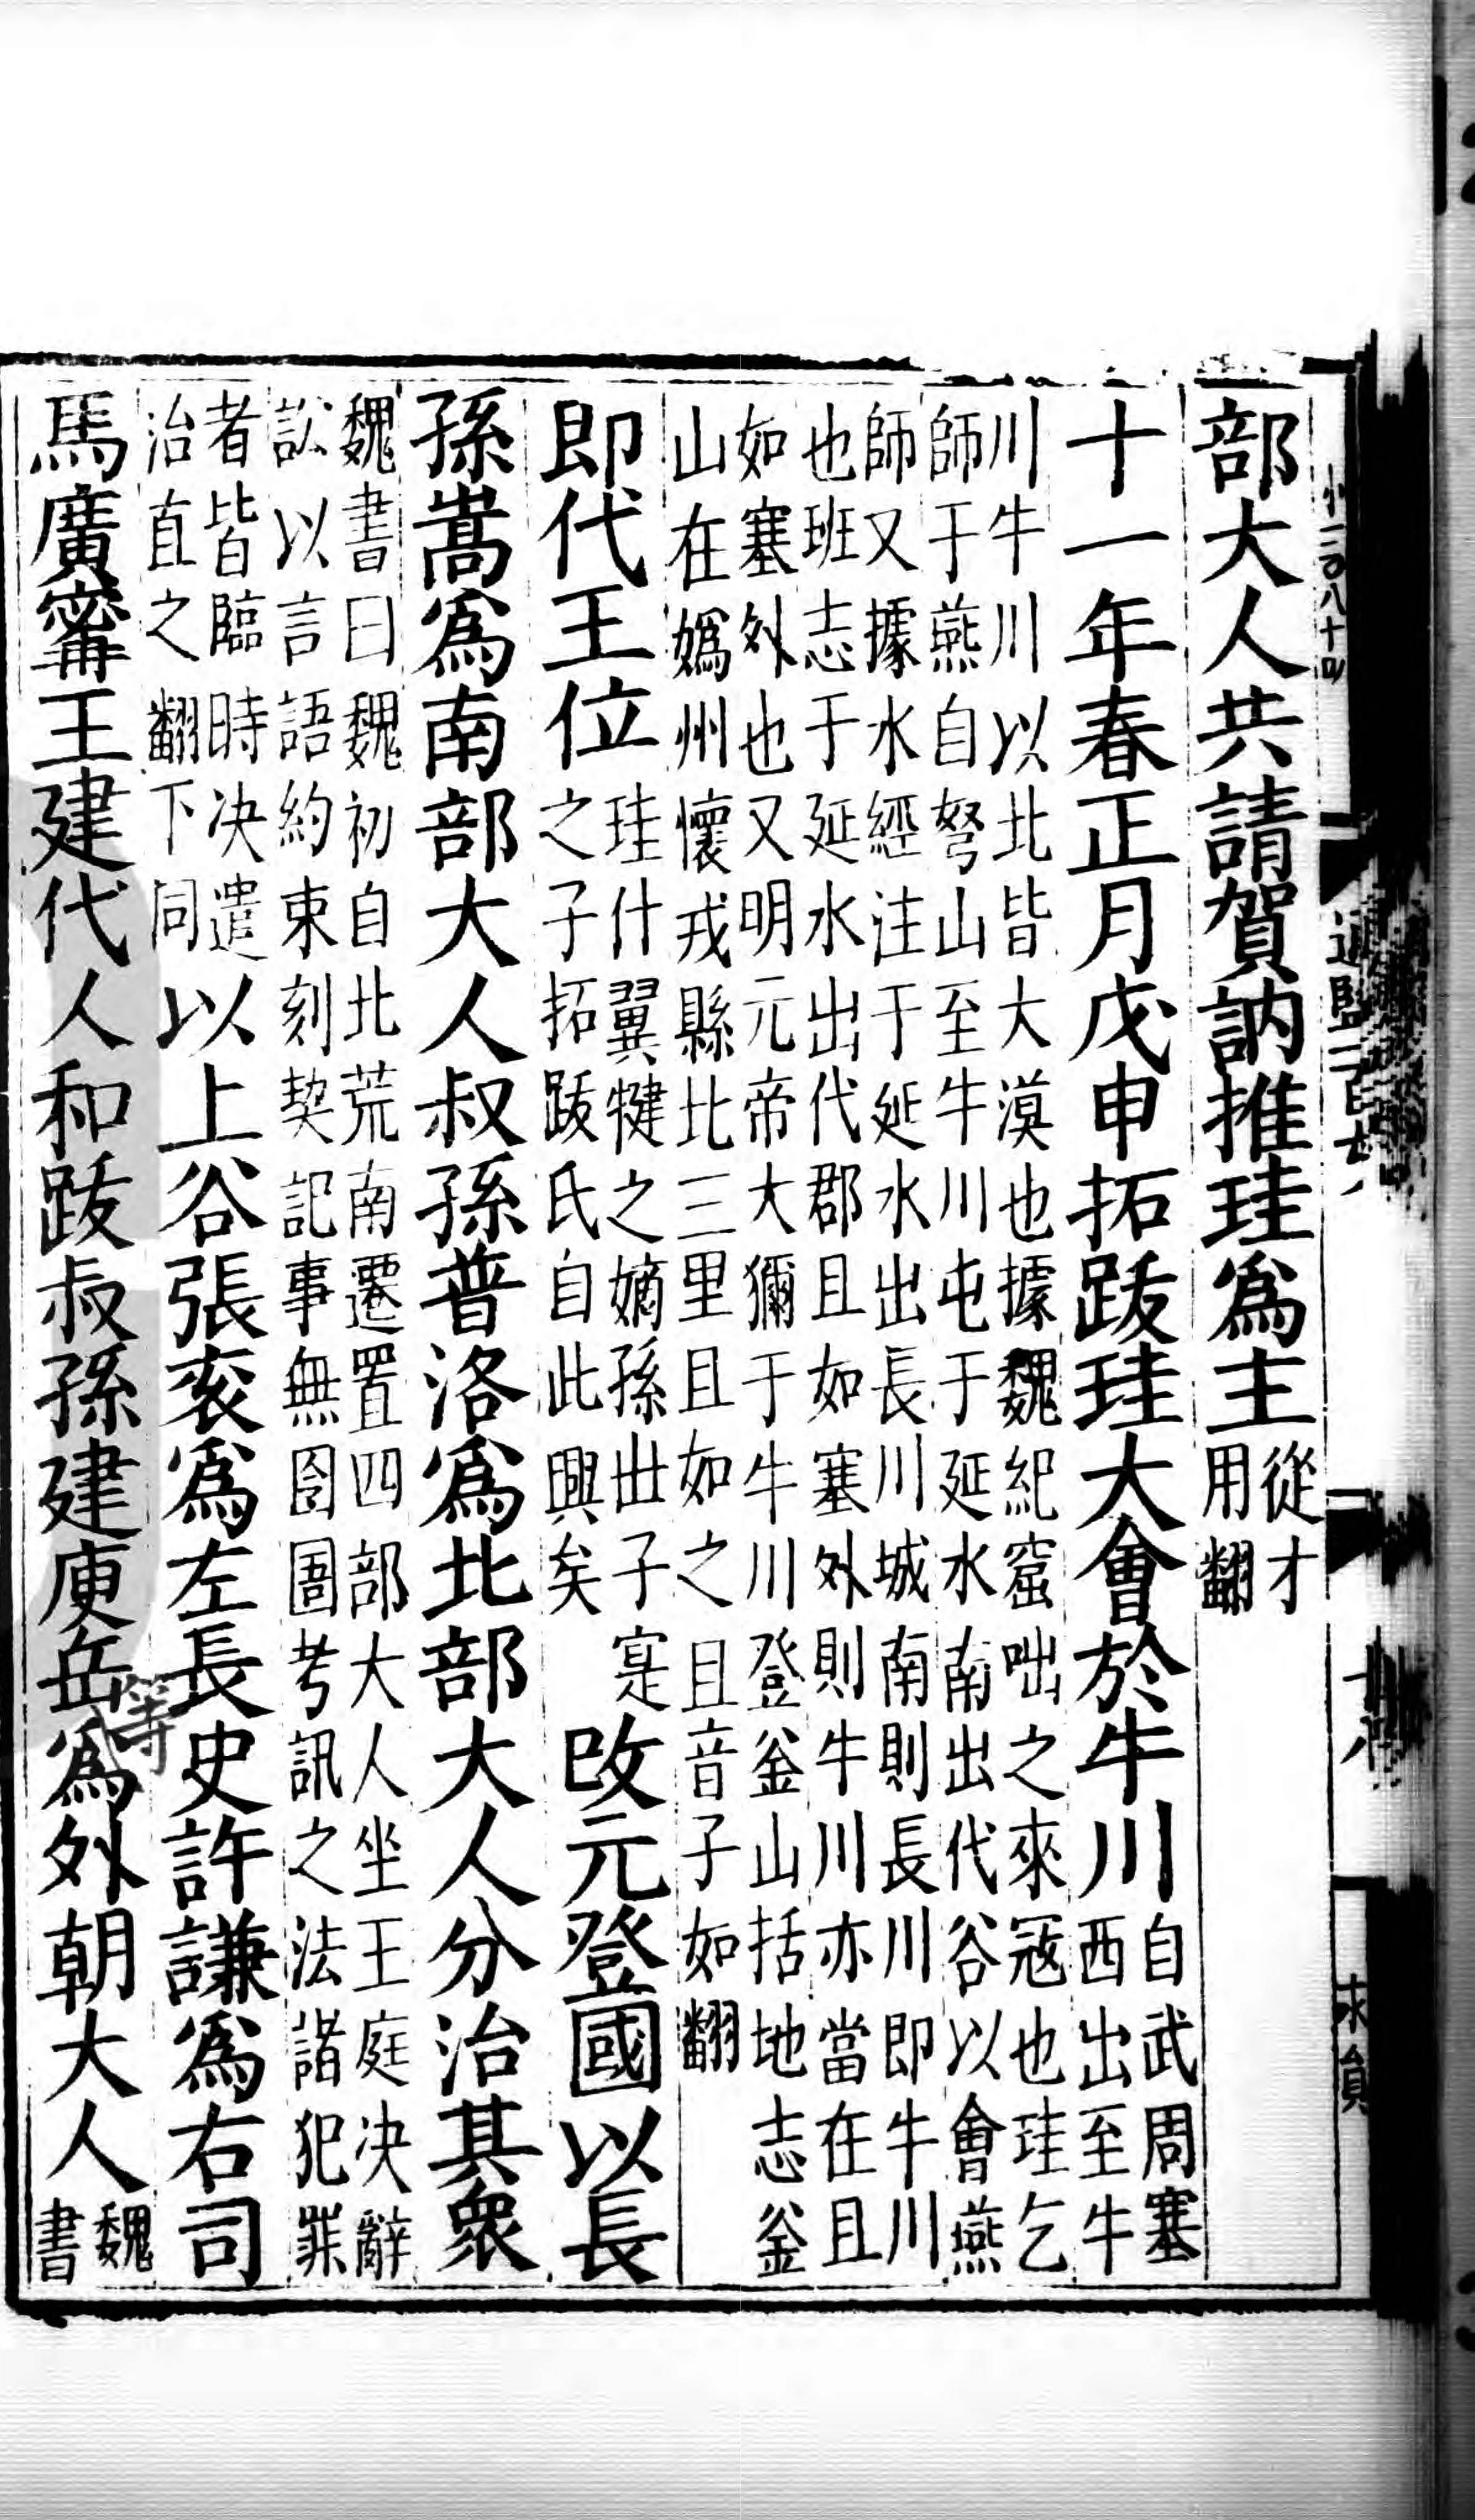 部大人共請賀訥推珪爲主從才用翻
十一年春正月戊申拓跋珪大會於牛川自武周塞西出至牛
川牛川以北皆大漠也據魏紀窟咄之來寇也珪乞
師于燕自弩山至牛川屯于延水南出代谷以會燕
師又據水經注于延水出長川城南則長川即牛川
也班志于延水出代郡且如塞外則牛川亦當在且
如塞外也又明元帝大獮于牛川登釜山括地志釜
山在嬀州懷戎縣北三里且如之且音子如翻
即代王位珪什翼犍之嫡孫世子寔之子拓跋氏自此興矣改元登國以長
孫嵩爲南部大人叔孫普洛爲北部大人分治其衆
魏書曰魏初自北荒南遷置四部大人坐王庭决辭
訟以言語約束刻契記事無囹圄考訊之法諸犯罪
者皆臨時决遣治直之翻下同以上谷張袞爲左長史許謙爲右司
馬廣甯王建代人和跋叔孫建庾岳爲外朝大人魏書
等